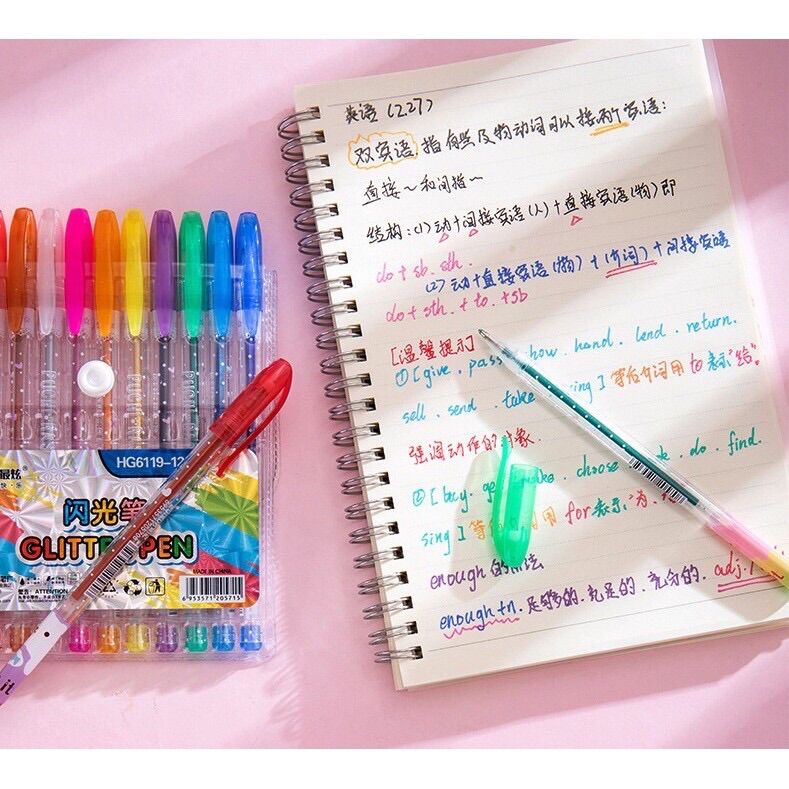 英语 (2.27)
双宾语.指有些及物动词可以接两个宾语:
直接~和间接~
结构:(1)动+间接宾语(人)+直接宾语(物)即
do + sb. sth.
(2)动+直接宾语(物) + (介词) + 间接宾语
do + sth. + to. + sb
[温馨提示]
①[give . pass how . hand . lend . return.
sell . send . take ing] 等后介词用 to 表示"给".
强调动作的对象.
②[buy . ge ake . choose . do . find.
sing] 等 用 for 表示:"为
enough 的 法
enough + n. 足够的. 充足的. 充分的. adj.
HG6119-12
闪光笔
GLITTER PEN
MADE IN CHINA
警告: ATTENTION
6 953571 205715
it